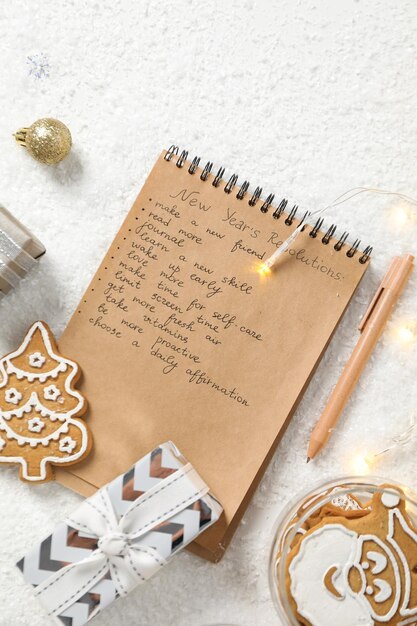 New Year's Resolutions:
make a new friend
read more
journal
learn a new skill
wake up early
love more
make time for self care
limit screen time
get more fresh air
take vitamins
be more proactive
choose a daily affirmation